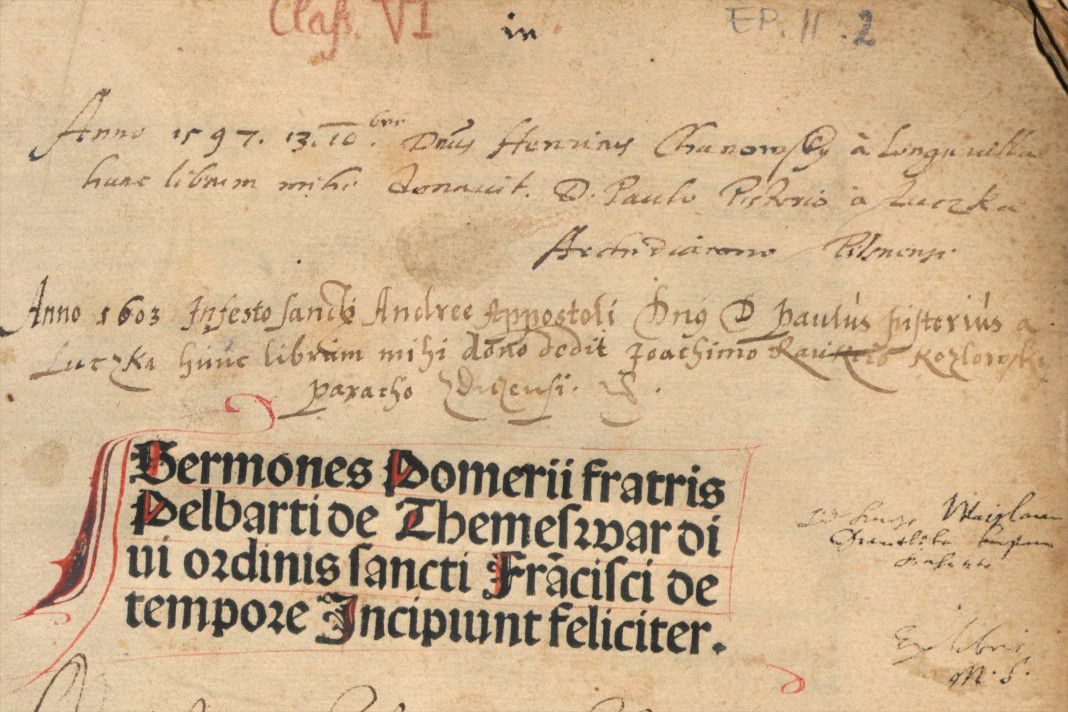 Class. VI
in
EP. II. 2
Anno 1597. 13. 10bris Dnus Henricus Chanowsky à Longavilla
hunc librum mihi donavit. D. Paulo Pistorio à Luczka
Archidiacono Pilsnensi.
Anno 1603 In festo sancti Andree Appostoli Dnus D Paulus Pistorius a
Luczka hunc librum mihi dono dedit Joachimo Kozlowsky
paracho Zdiczensi.
Sermones Pomerii fratris
Pelbarti de Themeswar di
ui ordinis sancti Frācisci de
tempore Incipiunt feliciter.
Ex libris
M. S.